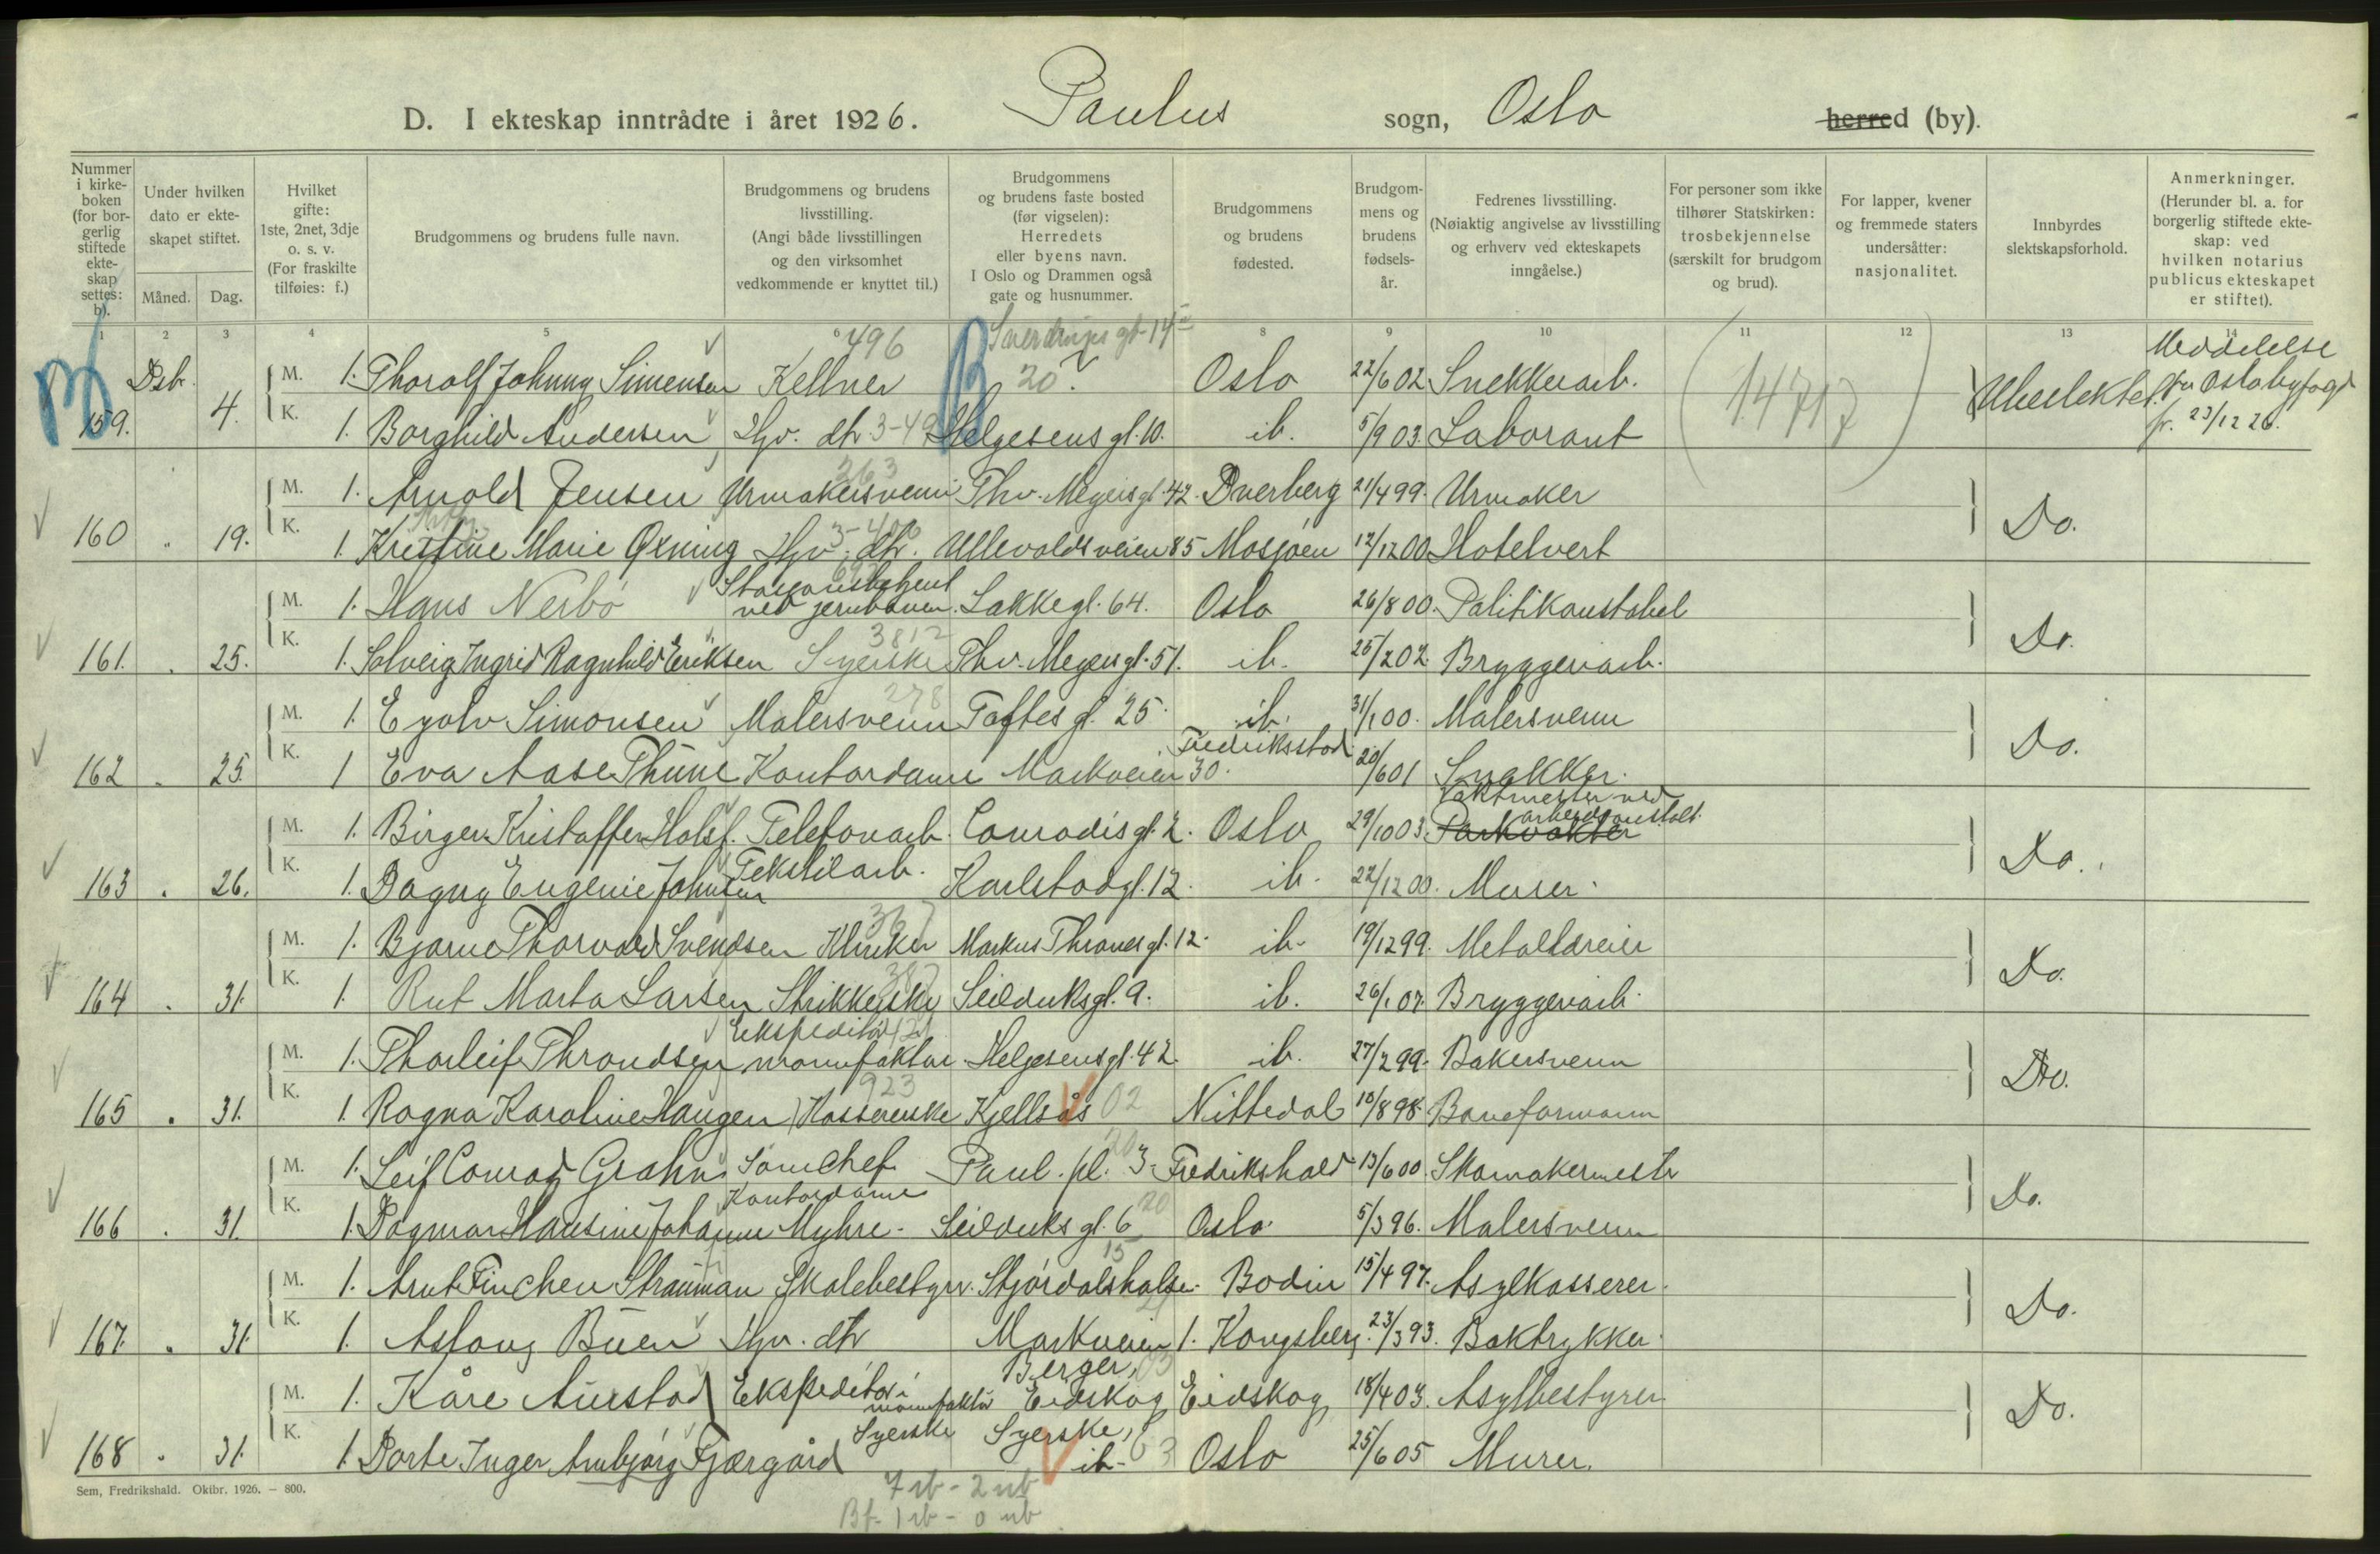 D. I ekteskap inntrådte i året 1926. Paulus sogn, Oslo herred (by).
Nummer i kirkeboken (for borgerlig stiftede ekteskap settes: b).
Under hvilken dato er ekteskapet stiftet.
Måned. Dag.
Hvilket gifte: 1ste, 2net, 3dje o. s. v. (For fraskilte tilføies: f.)
Brudgommens og brudens fulle navn.
Brudgommens og brudens livsstilling. (Angi både livsstillingen og den virksomhet vedkommende er knyttet til.)
Brudgommens og brudens faste bosted (før vigselen): Herredets eller byens navn. I Oslo og Drammen også gate og husnummer.
Brudgommens og brudens fødested.
Brudgommens og brudens fødselsår.
Fedrenes livsstilling. (Nøiaktig angivelse av livsstilling og erhverv ved ekteskapets inngåelse.)
For personer som ikke tilhører Statskirken: trosbekjennelse (særskilt for brudgom og brud).
For lapper, kvener og fremmede staters undersåtter: nasjonalitet.
Innbyrdes slektskapsforhold.
Anmerkninger. (Herunder bl. a. for borgerlig stiftede ekteskap: ved hvilken notarius publicus ekteskapet er stiftet).
1 2 3 4 5 6 8 9 10 11 12 13 14
496 Sverdrups gt. 14
Dsb. M. 1. Thorolf Johnny Simensen Kellner 20. Oslo 22/6 02 Snekkerarb. (14717) Ubeslektet Meddelelse fra Oslo byfogd
159. 4. K. 1. Borghild Andersen Hjv. dtr. 3-49 Helgesens gt. 10. ib. 5/9 03. Laborant fr. 23/12 26.
M. 1. Arnold Jensen Urmakersvenn 363 Thv. Meyers gt. 42. Dverberg 21/4 99. Urmaker
160 " 19. K. 1. Kristine Marie Øxning Hjv. dtr. 3-400 Ullevoldsveien 85 Mosjøen 12/12 00 Hotelvert Do.
M. 1. Hans Nerbö Stasjonsbetjent ved jernbanen. Lakkegt. 64. Oslo 26/8 00. Politikonstabel
161. . 25. K. 1. Solveig Ingrid Ragnhild Eriksen Syerske 3812 Thv. Meyers gt. 51. ib. 25/2 02. Bryggeriarb. Do.
M. 1. Eyolv Simonsen Malersvenn 278 Toftes gt. 25. ib. 31/1 00. Malersvenn
162 . 25. K. 1 Eva Aase Thune Kontordame Markveien 30. Fredriksstad 20/6 01 Snekker. Do.
M. 1. Birger Kristoffer Holst. Telefonarb. Conradis gt. 2. Oslo 29/10 03. Parkvakter Vaktmester ved arbeidsanstalt.
163 . 26. K. 1. Dagny Eugenie Johnsen Tekstilarb. Karlstadgt. 12. ib. 22/12 00. Murer. Do.
M. 1. Bjarne Thorvald Svendsen Klinker 367 Markus Thranes gt. 12. ib. 19/12 99. Metaldreier
164 . 31. K. 1. Rut Marta Larsen Strikkerske 387 Seilduksgt. 9. ib. 26/1 07. Bryggeriarb. Do.
M. 1. Thorleif Throndsen Ekspeditør manufaktur Helgesens gt. 42. ib. 27/2 99. Bakersvenn
165 . 31. K. 1. Ragna Karoline Haugen Kassererske 923 Kjellsås 02 Nittedal 10/8 98. Baneformann Do.
M. 1. Leif Conrad Grahn Sömchef Paul. pl. 3. 20 Fredrikshald 13/6 00. Skomakermester
166 . 31. K. 1. Dagmar Hansine Johanne Myhre. Kontordame Seilduks gt. 6 20 Oslo 5/3 96. Malersvenn Do.
M. 1. Arnt Finchen Strauman Skolebestyr. Stjördalshalsen. 15 Bodin 15/4 97. Asylkasserer.
167. . 31. K. 1. Aslaug Buen Hjv. dtr Markveien 1. 21 Kongsberg. 23/3 93. Boktrykker. Do.
M. 1. Kåre Aurstad Ekspeditør i manufaktur Berger, Eidskog 03 Eidskog 18/4 03. Asylbestyrer
168 . 31. K. 1. Dorte Inger Arnbjørg Fjærgård Syerske Syerske, ib. 03 Oslo 25/6 05 Murer. Do.
Sem, Fredrikshald. Oktbr. 1926. — 800.
7 ib - 2 ub
Bf - 1 ib - 0 ub